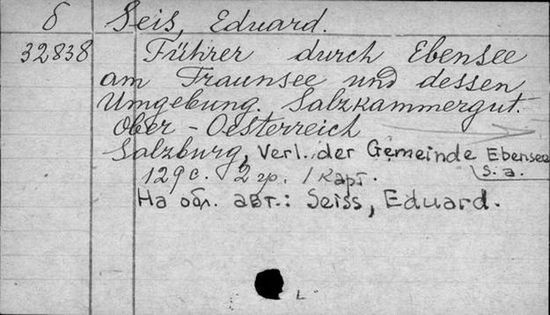 б Seis, Eduard.
32838 Führer durch Ebensee
am Traunsee und dessen
Umgebung. Salzkammergut.
Ober-Oesterreich
Salzburg, Verl. der Gemeinde Ebensee
s.a.
129 с. 2 гр. 1 карт.
На обл. авт.: Seiss, Eduard.
L